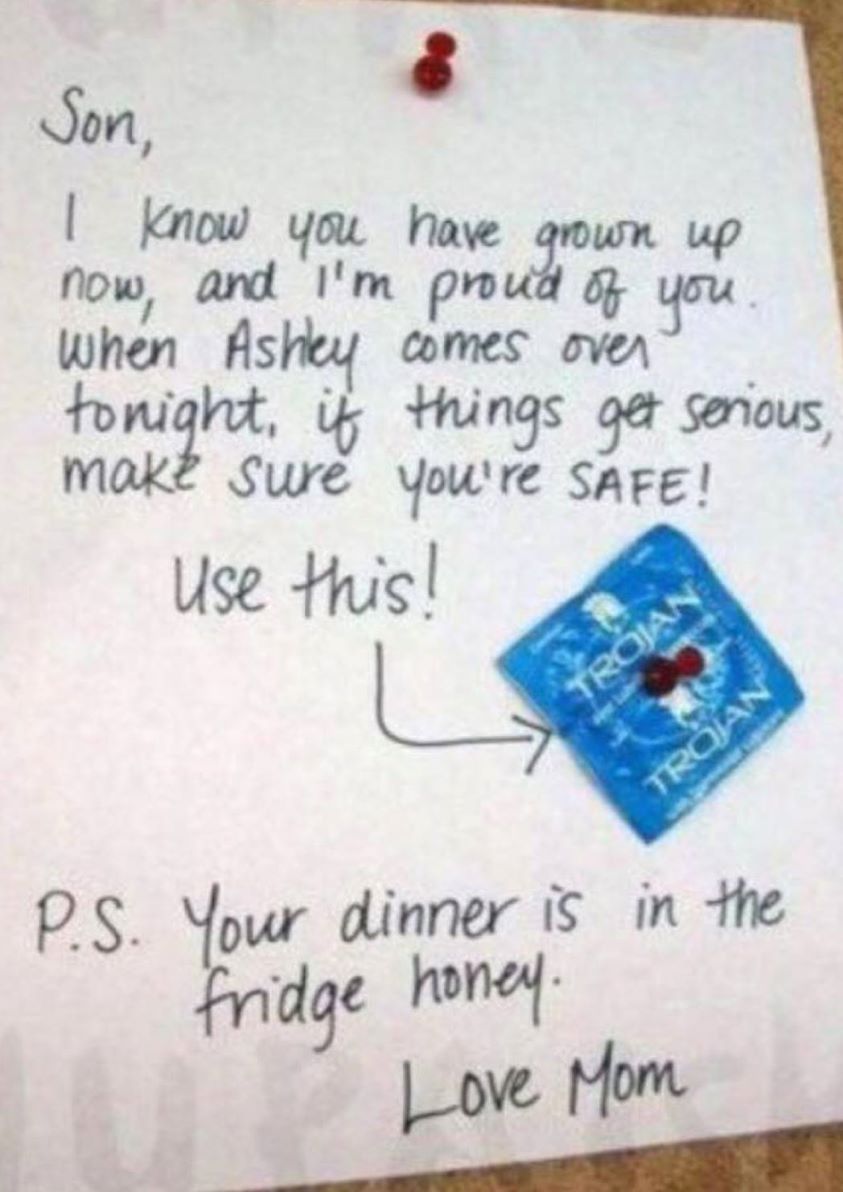 Son,
I know you have grown up
now, and I'm proud of you.
When Ashley comes over
tonight, if things get serious,
make sure you're SAFE!
Use this!
TROJAN
TROJAN
P.S. Your dinner is in the
fridge honey.
Love Mom